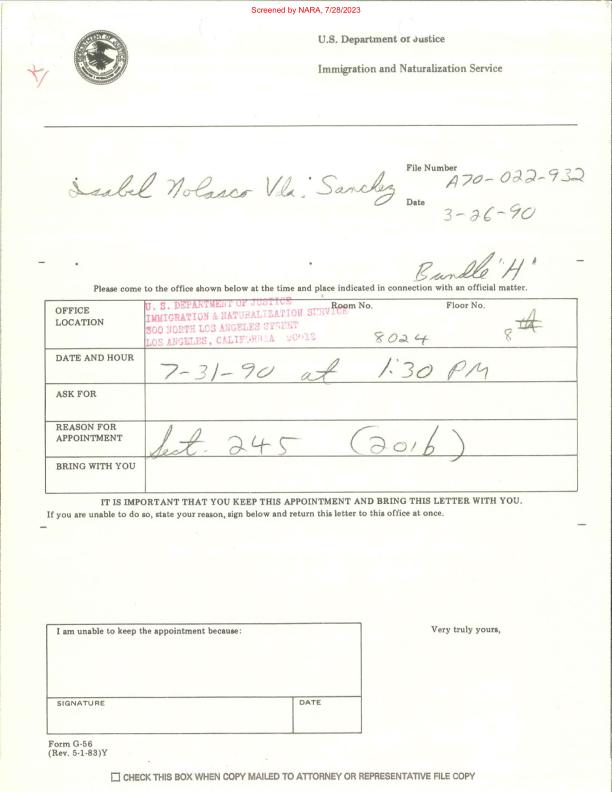 Screened by NARA, 7/28/2023
U.S. Department of Justice
Immigration and Naturalization Service
File Number
A70-022-932
Isabel Nolasco Vda. Sanchez
Date
3-26-90
Bundle "H"
Please come to the office shown below at the time and place indicated in connection with an official matter.
OFFICE LOCATION
U. S. DEPARTMENT OF JUSTICE
IMMIGRATION & NATURALIZATION SERVICE
300 NORTH LOS ANGELES STREET
LOS ANGELES, CALIFORNIA 90012
Room No.
8024
Floor No.
8
DATE AND HOUR
7-31-90 at 1:30 PM
ASK FOR
REASON FOR APPOINTMENT
Sect. 245 (201b)
BRING WITH YOU
IT IS IMPORTANT THAT YOU KEEP THIS APPOINTMENT AND BRING THIS LETTER WITH YOU.
If you are unable to do so, state your reason, sign below and return this letter to this office at once.
I am unable to keep the appointment because:
Very truly yours,
SIGNATURE
DATE
Form G-56
(Rev. 5-1-83)Y
CHECK THIS BOX WHEN COPY MAILED TO ATTORNEY OR REPRESENTATIVE FILE COPY